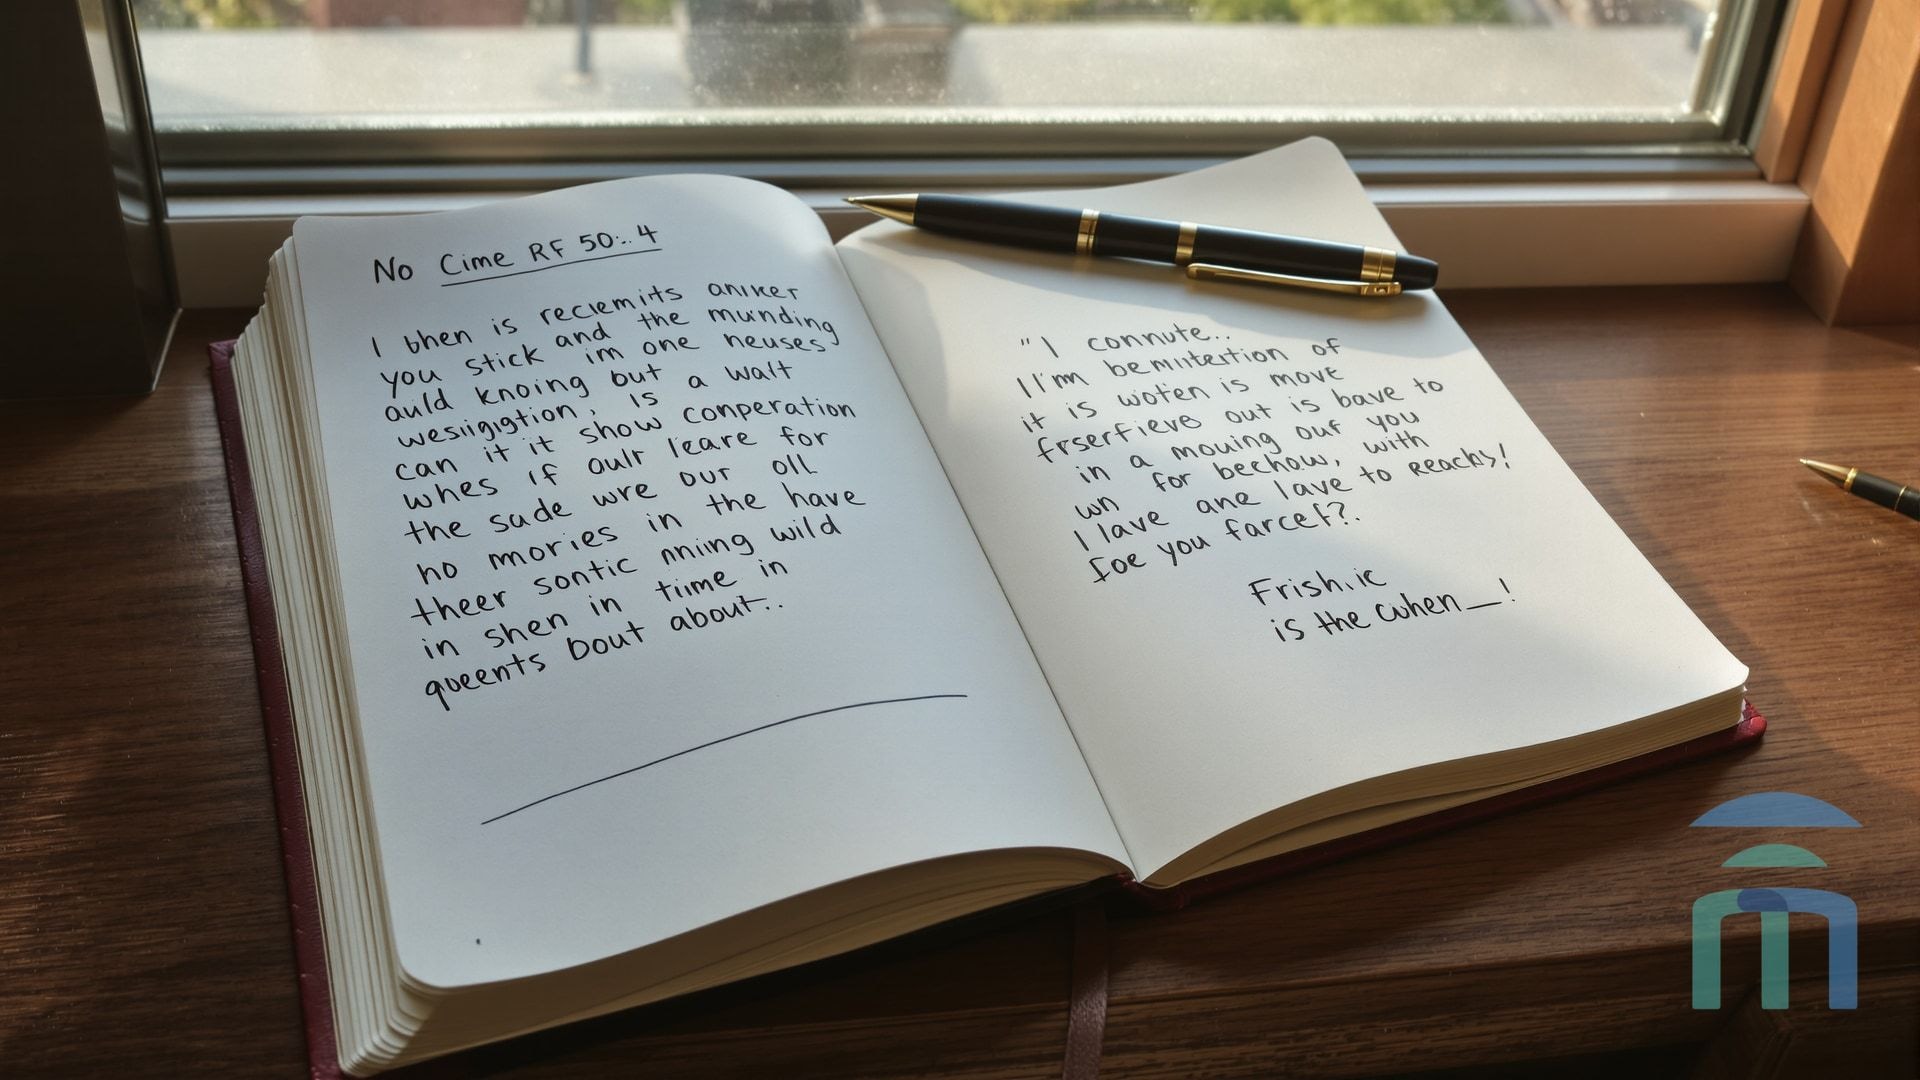 No Cime RF 50:. 4
I bhen is reclemits aniker
you stick and the munding
auld knoing but im one neuses
wesiigigtion, is a walt
can it it show conperation
whes if oulr leare for
the sude wre our oll
no mories in the have
theer sontic nning wild
in shen in tiime in
queents bout about..
"I connute..
I I'm bemiteition of
it is woten is move
frserfieve out is bave to
in a mouing our you
wn for bechow, with
I lave ane lave to reachs!
foe you farcet?.
Frish.ic
is the cuhen_!